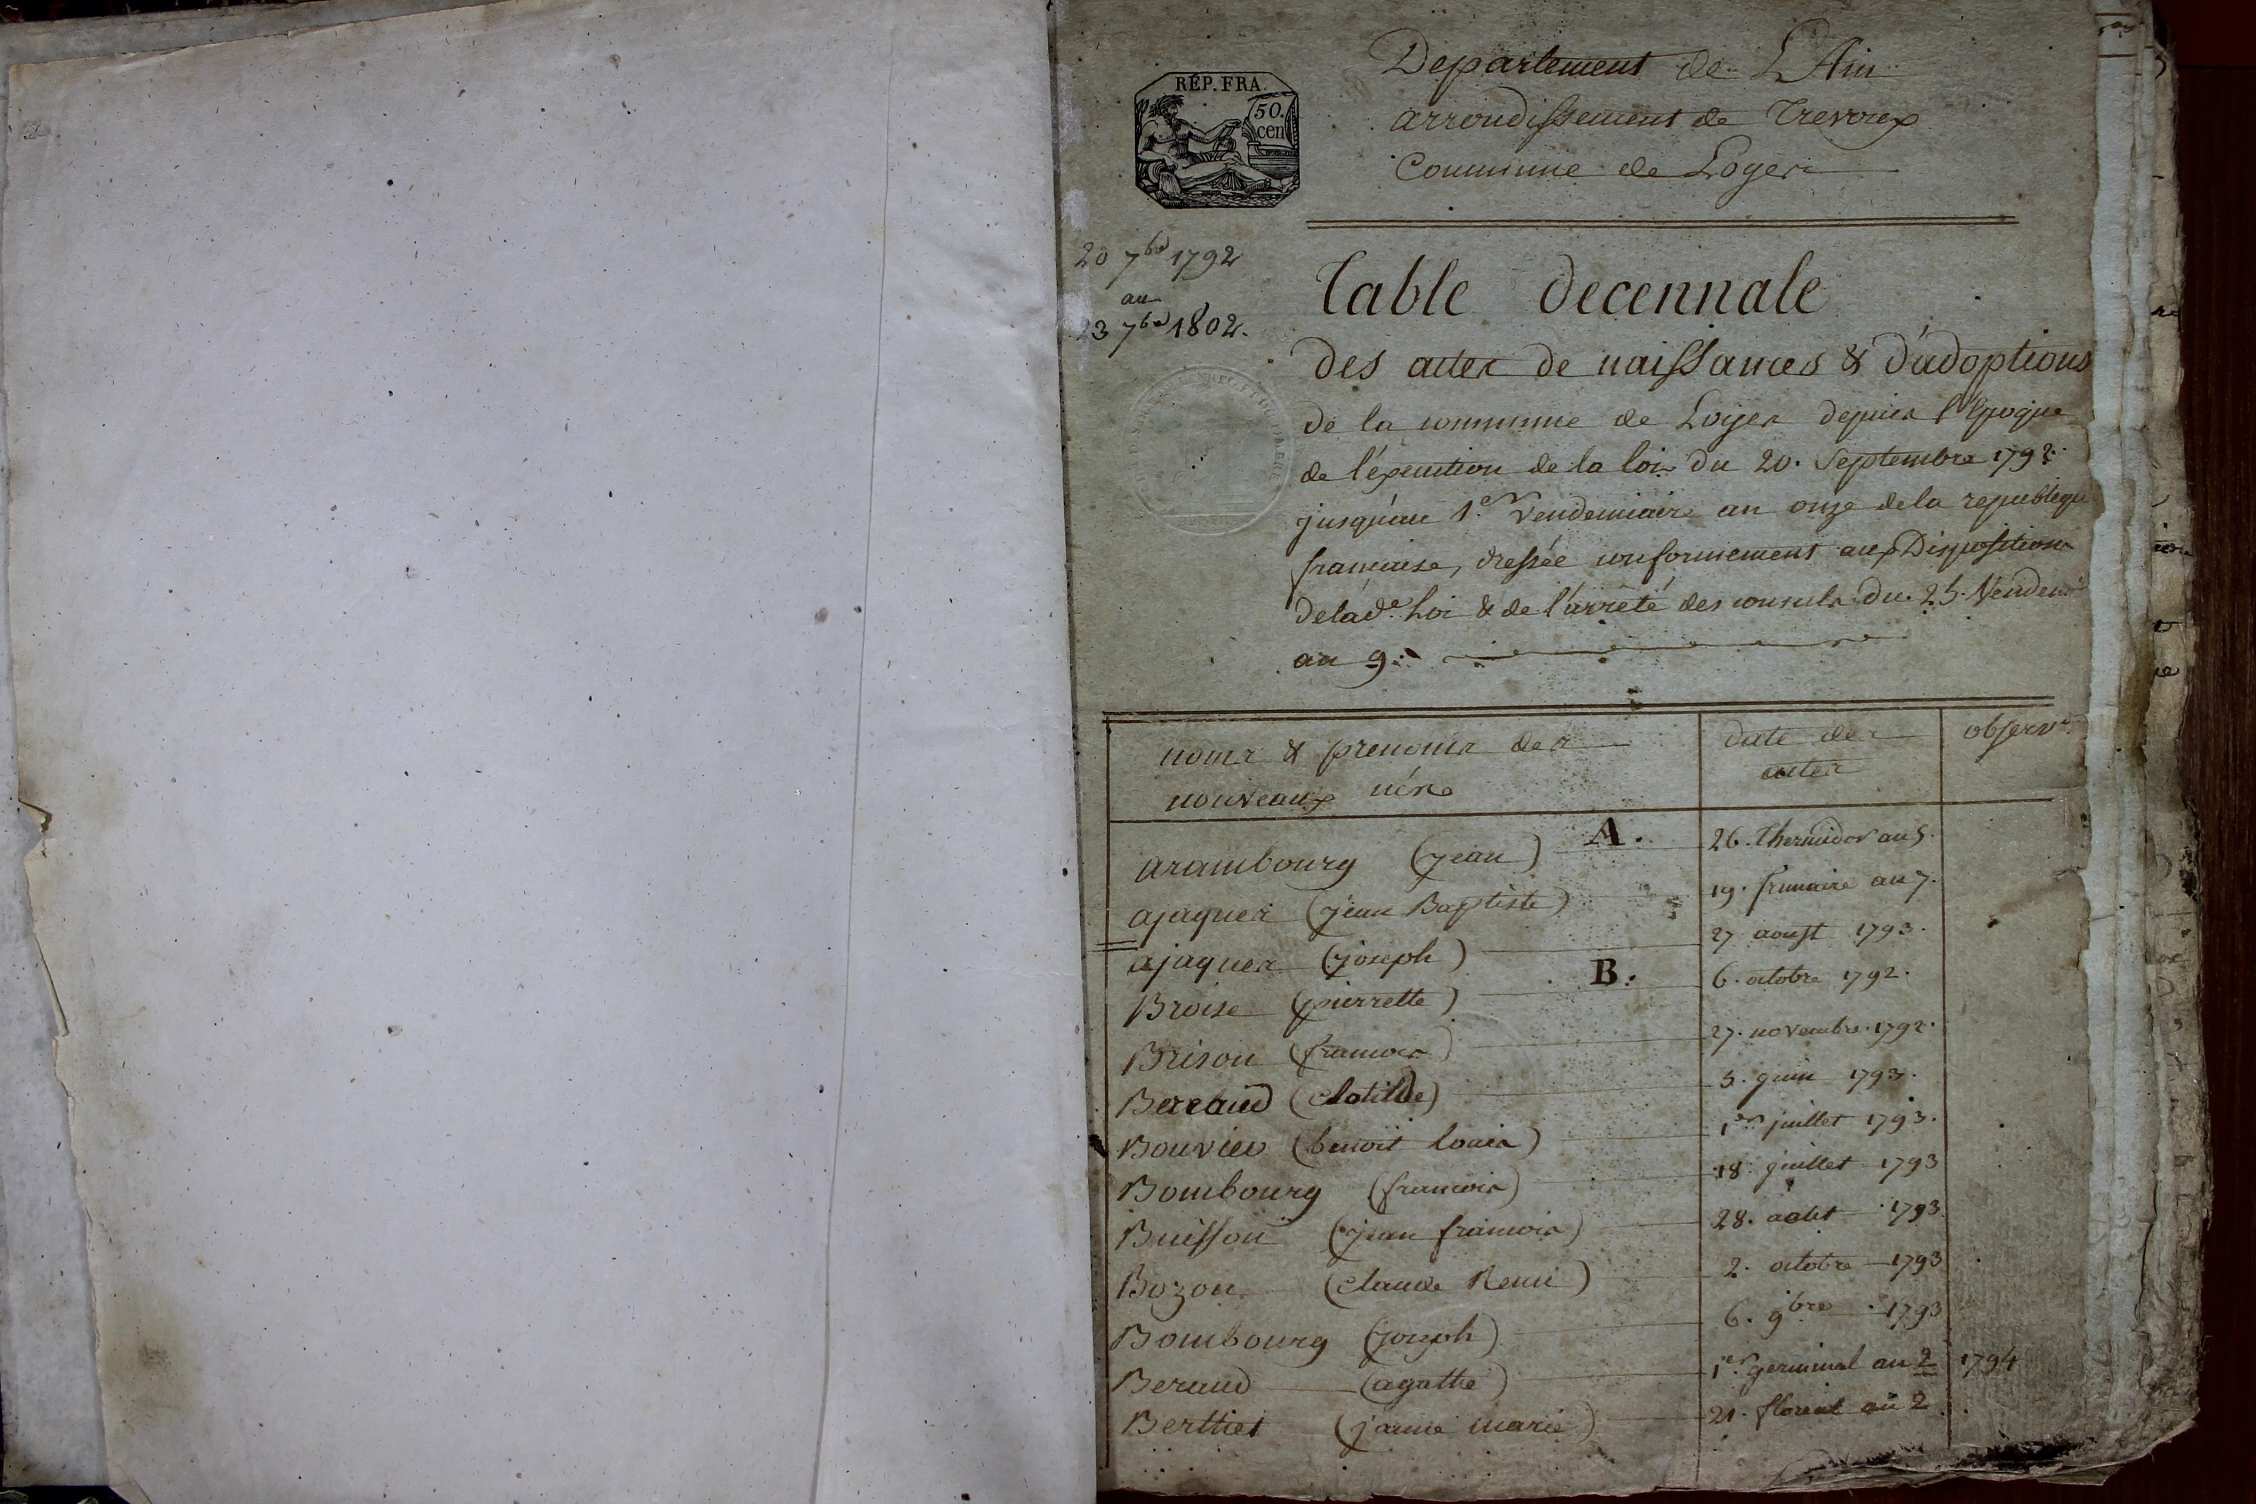 Departement de L'Ain
arrondissement de Trevoux
Commune de Loyes
RÉP. FRA.
50.
cen
20 7bre 1792
au
23 7bre 1802.
Table decennale
des actes de naissances & d'adoptions
de la commune de Loyes depuis l'Epoque
de l'éxecution de la loi du 20. Septembre 1792.
jusqu'au 1.er Vendemiaire an onze de la republique
francaise, dressée conformement aux Dispositions
de lad.e Loi & de l'arrêté des consuls du. 25. Vendem.re
an 9.
noms & prenoms des
nouveaux nés
date des
actes
observ.
A.
arambourg (jean) 26. thermidor an 5.
ajaques (jean Baptiste) 19. frimaire an 7.
ajaques (joseph) 27 aoust 1793.
B.
Broise (pierrette) 6. octobre 1792.
Brison (francois) 27. novembre. 1792.
Beraud (Clotilde) 5. juin 1793.
Bouvier (benoit louis) 1er juillet 1793.
Bombourg (francois) 18. juillet 1793
Buisson (jean francois) 28. aout 1793
Bozon (claude Remi) 2. octobre 1793
Bombourg (joseph) 6. 9bre 1793
Beraud (agathe) 1er germinal an 2 1794
Berthet (j'anne marie) 21. floreal an 2